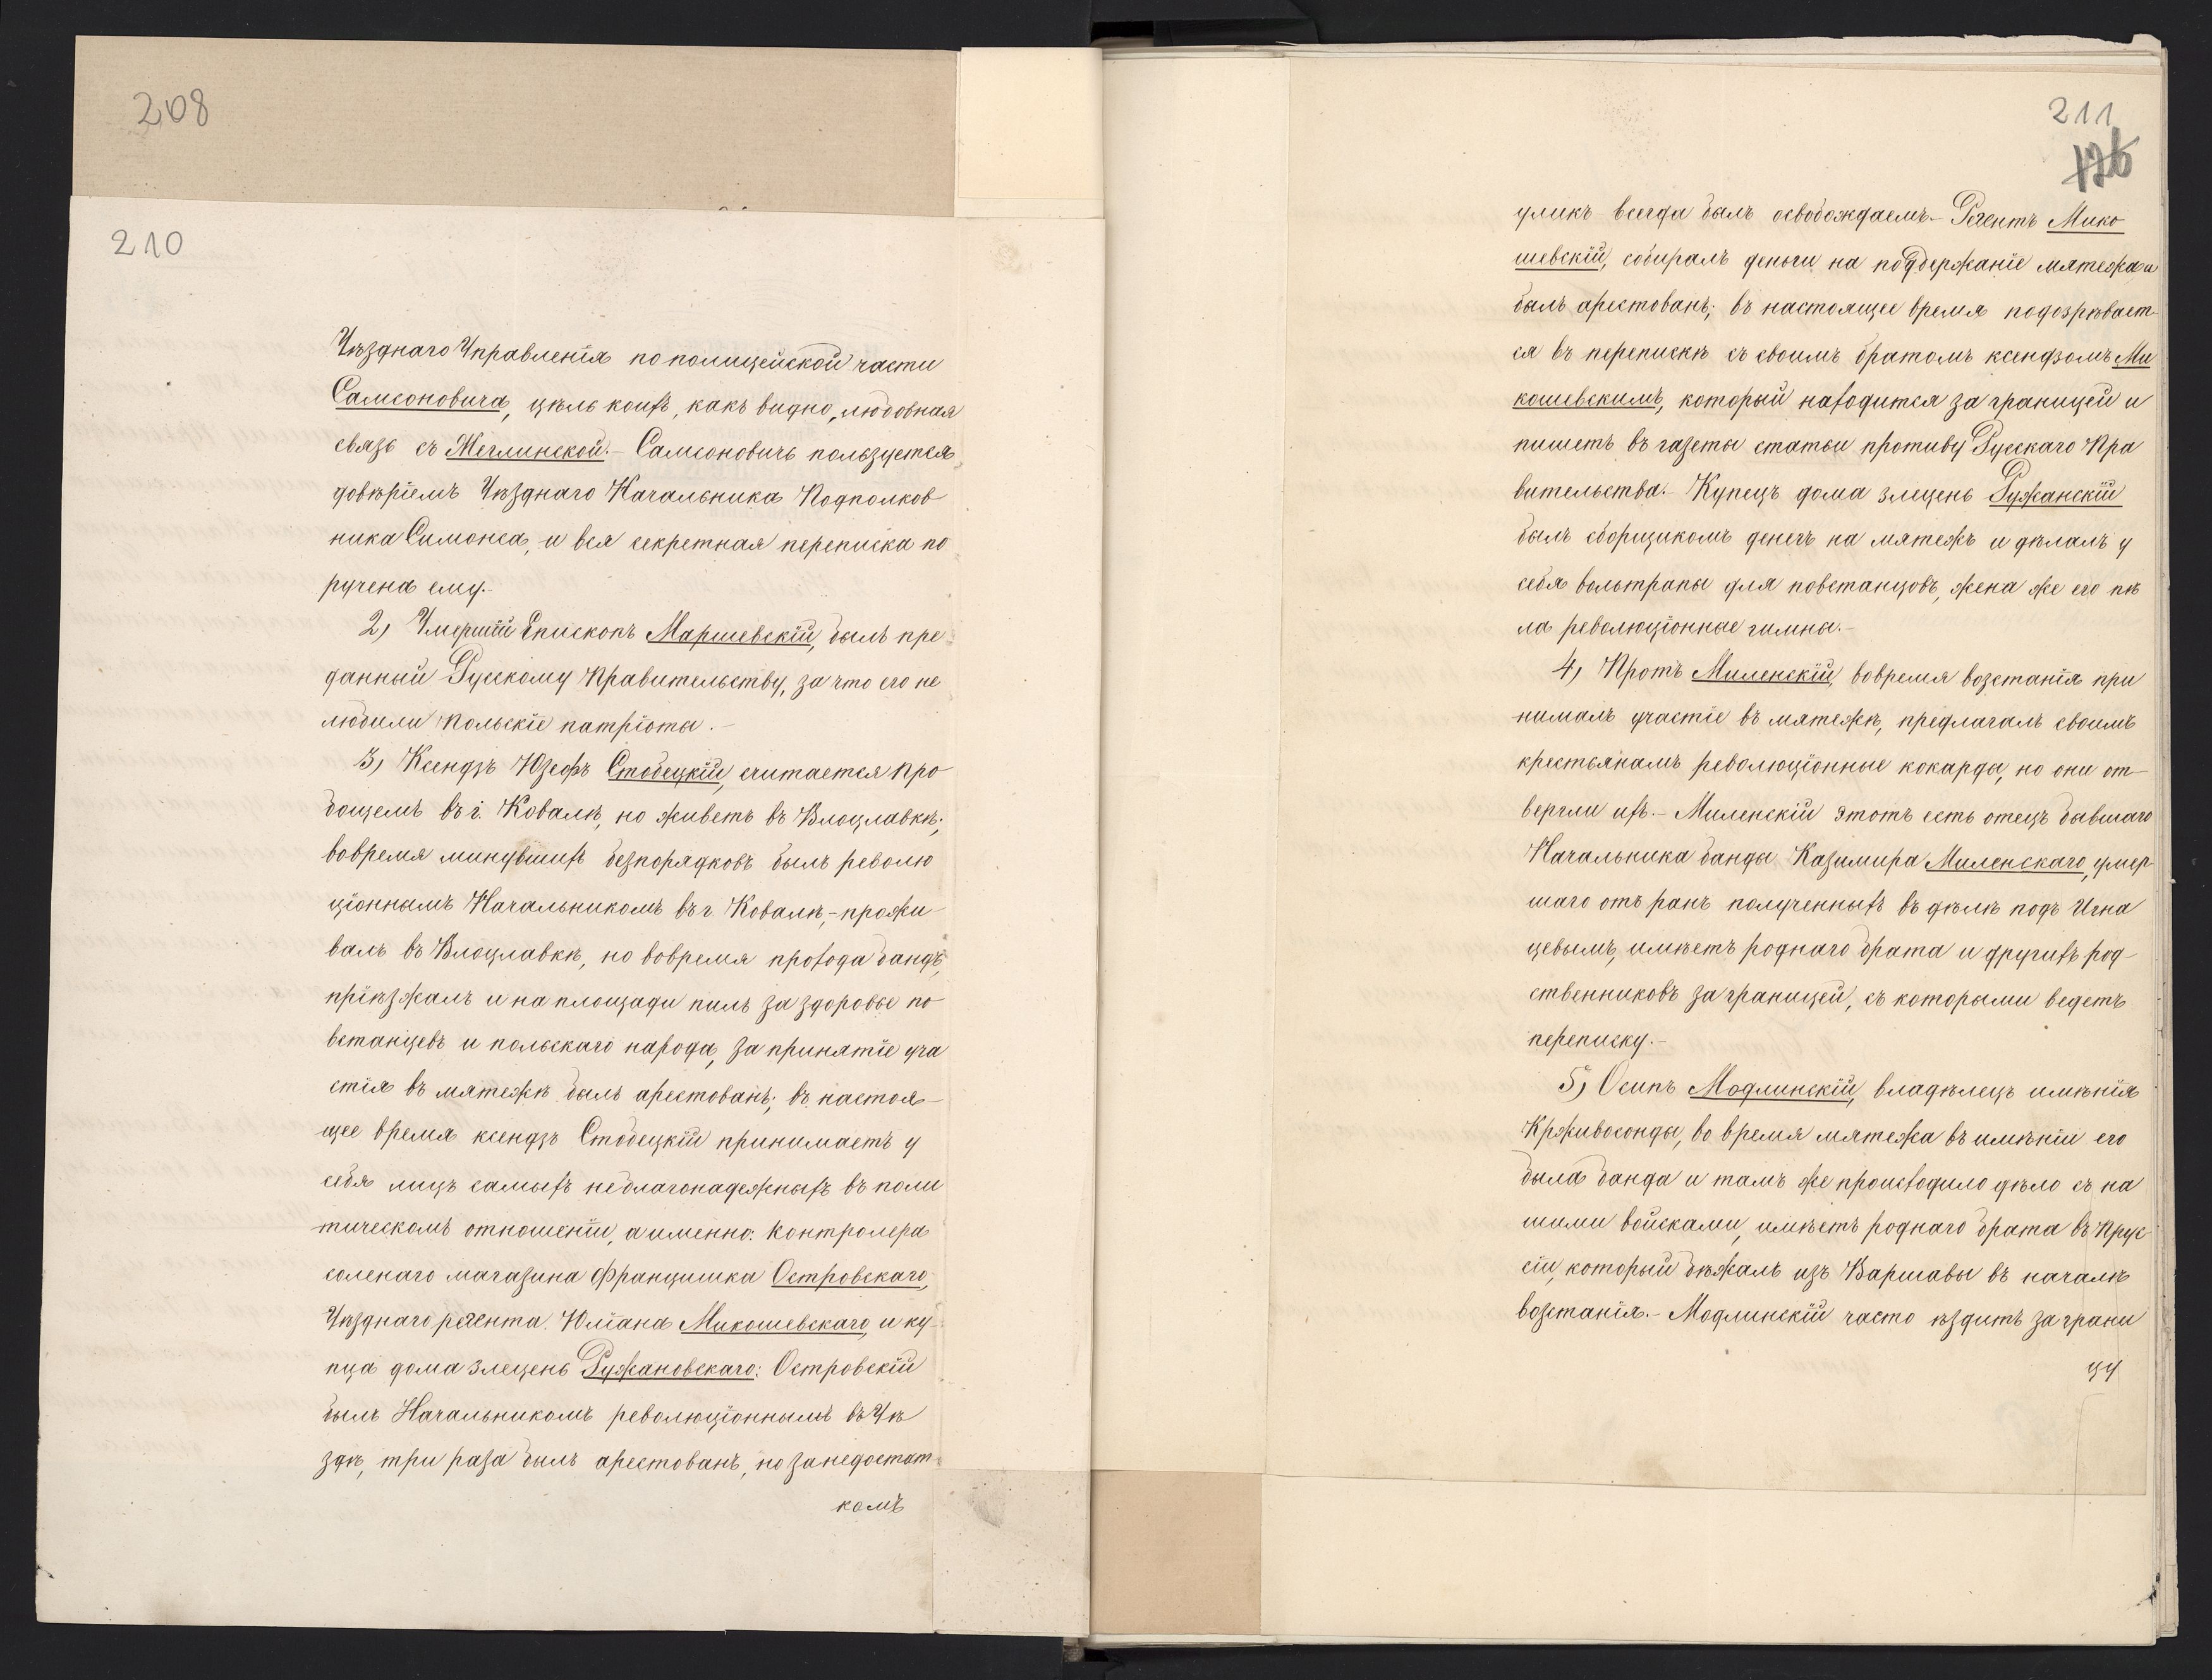 208
210
Уѣзднаго Управленія по полицейской части
Самсоновича, цѣль коихъ, какъ видно, любовная
связь съ Жеглинской.- Самсоновичъ пользуется
довѣріемъ Уѣзднаго Начальника Подполков
ника Симонса, и вся секретная переписка по
ручена ему.-
2, Умершій Епископъ Маршевскій, былъ пре
данный Русскому Правительству, за что его не
любили Польскіе патріоты.-
3, Ксендзъ Юзефъ Стобецкій, считается Про
бощемъ въ г. Ковалѣ, но живетъ въ Влоцлавкѣ;
вовремя минувшихъ безпорядковъ былъ револю
ціоннымъ Начальникомъ въ г Ковалѣ,- прожи
валъ въ Влоцлавкѣ, но вовремя прохода бандъ,
пріѣзжалъ и на площади пилъ за здоровье по
встанцевъ и польскаго народа, за принятіе уча
стія въ мятежѣ былъ арестованъ; въ настоя-
щее время ксендзъ Стобецкій принимаетъ у
себя лицъ самыхъ неблагонадежныхъ въ поли
тическомъ отношеніи, а именно: Контролера
соленаго магазина Францишка Островскаго,
Уѣзднаго регента Юліана Микошевскаго, и ку-
пца дома злецень Ружановскаго: Островскій
былъ Начальникомъ революціоннымъ въ Уѣ
здѣ, три раза былъ арестованъ, но за недостат-
комъ
211
126
уликъ всегда былъ освобождаемъ.- Регентъ Мико
шевскій, собиралъ деньги на поддержаніе мятежа и
былъ арестованъ; въ настоящее время подозрѣвает-
ся въ перепискѣ съ своимъ братомъ ксендзомъ Ми
кошевскимъ, который находится за границей и
пишетъ въ газеты статьи противу Русскаго Пра
вительства.- Купецъ дома злецень Ружанскій
былъ сборщикомъ денегъ на мятежъ и дѣлалъ у
себя вольтрапы для повстанцовъ, жена же его пѣ
ла революціонные гимны.-
4, Протъ Миленскій, вовремя возстанія при
нималъ участіе въ мятежѣ, предлагалъ своимъ
крестьянамъ революціонные кокарды, но они от-
вергли ихъ.- Миленскій этотъ есть отецъ бывшаго
Начальника банды Казимира Миленскаго, умер-
шаго отъ ранъ полученныхъ въ дѣлѣ подъ Игна
цевымъ, имѣетъ роднаго брата и другихъ род-
ственниковъ за границей, съ которыми ведетъ
переписку.-
5, Осипъ Модлинскій, владѣлецъ имѣнія
Крживосонды, во время мятежа въ имѣніи его
была банда и тамъ же происходило дѣло съ на
шими войсками, имѣетъ роднаго брата въ Прус-
сіи, который бѣжалъ изъ Варшавы въ началѣ
возстанія.- Модлинскій часто ѣздитъ за грани
цу